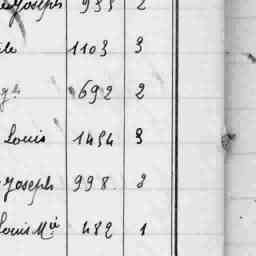 Joseph 935 2
1103 3
692 2
Louis 1454 3
Joseph 998. 2
Louis Mie 482 1